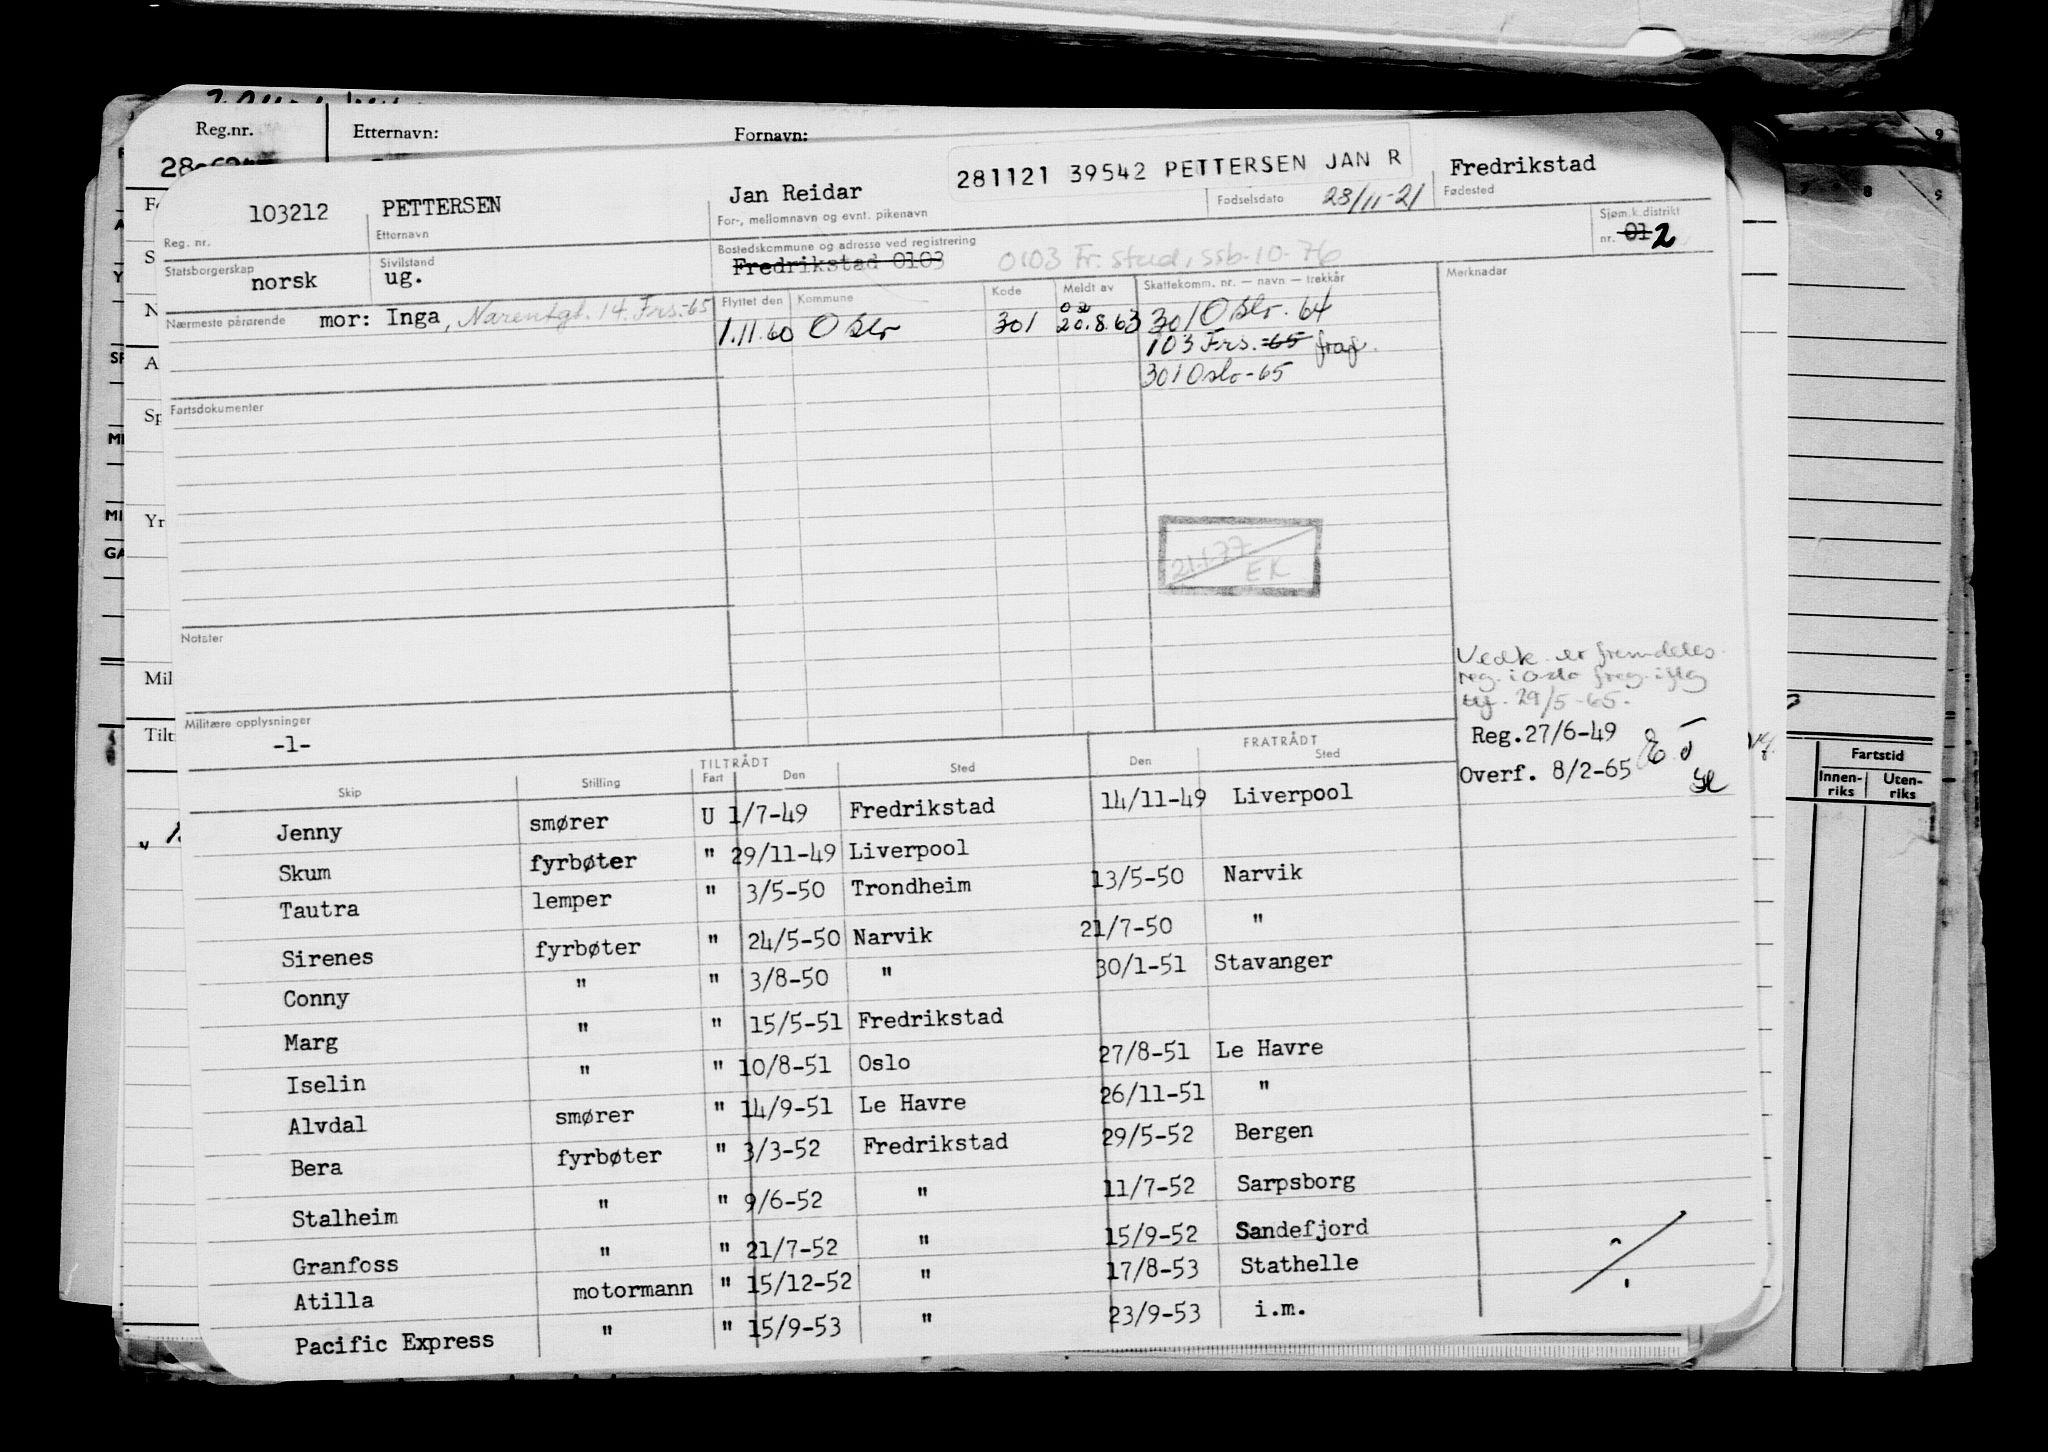 Reg.nr. Etternavn: Fornavn:
281121 39542 PETTERSEN JAN R
103212 PETTERSEN Jan Reidar 28/11-21 Fredrikstad
Reg. nr. Etternavn For-, mellomnavn og evnt. pikenavn Fødselsdato Fødested
Statsborgerskap norsk Sivilstand ug. Bostedskommune og adresse ved registrering Fredrikstad 0103 0103 Fr.stad, ssb-10-76 Sjøm.k.distrikt nr. 01 2
Nærmeste pårørende mor: Inga, 14. Frs.-65
Flyttet den Kommune Kode Meldt av Skattekomm. nr. — navn — trekkår Merknader
1.11.60 Oslo 301 20.8.63 301 Oslo. 64
103 Frs. -65 frag.
301 Oslo-65
Fartsdokumenter
21.1.77
EK
Notater
Vedk. er fremdeles
reg. i Oslo freg. iflg
29/5-65.
Militære opplysninger
-1-
Reg.27/6-49
Overf. 8/2-65
TILTRÅDT FRATRÅDT
Skip Stilling Fart Den Sted Den Sted
Jenny smører U 1/7-49 Fredrikstad 14/11-49 Liverpool
Skum fyrbøter " 29/11-49 Liverpool
Tautra lemper " 3/5-50 Trondheim 13/5-50 Narvik
Sirenes fyrbøter " 24/5-50 Narvik 21/7-50 "
Conny " " 3/8-50 " 30/1-51 Stavanger
Marg " " 15/5-51 Fredrikstad
Iselin " " 10/8-51 Oslo 27/8-51 Le Havre
Alvdal smører " 14/9-51 Le Havre 26/11-51 "
Bera fyrbøter " 3/3-52 Fredrikstad 29/5-52 Bergen
Stalheim " " 9/6-52 " 11/7-52 Sarpsborg
Granfoss " " 21/7-52 " 15/9-52 Sandefjord
Atilla motormann " 15/12-52 " 17/8-53 Stathelle
Pacific Express " " 15/9-53 " 23/9-53 i.m.
Fartstid
Innen-riks Uten-riks